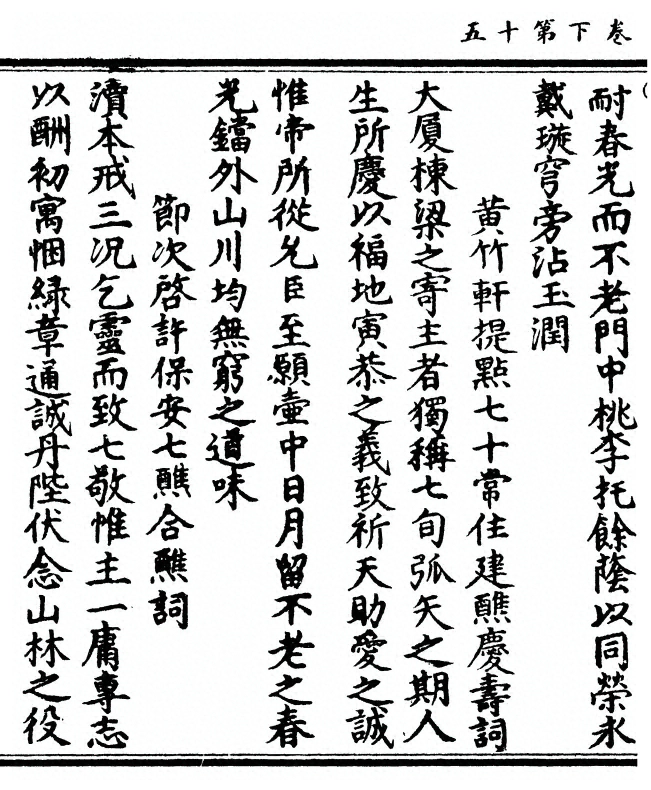 卷下第十五
耐春光而不老門中桃李托餘蔭以同榮永
戴璇穹旁沾玉潤
黄竹軒提點七十常住建醮慶壽詞
大厦棟梁之寄主者獨稱七旬弧矢之期人
生所慶以福地寅恭之義致祈天助愛之誠
惟帝所從允臣至願壺中日月留不老之春
光鐺外山川均無窮之道味
節次啓許保安七醮合醮詞
瀆本戒三况乞靈而致七敬惟主一庸專志
以酬初寓悃緑章通誠丹陛伏念山林之役